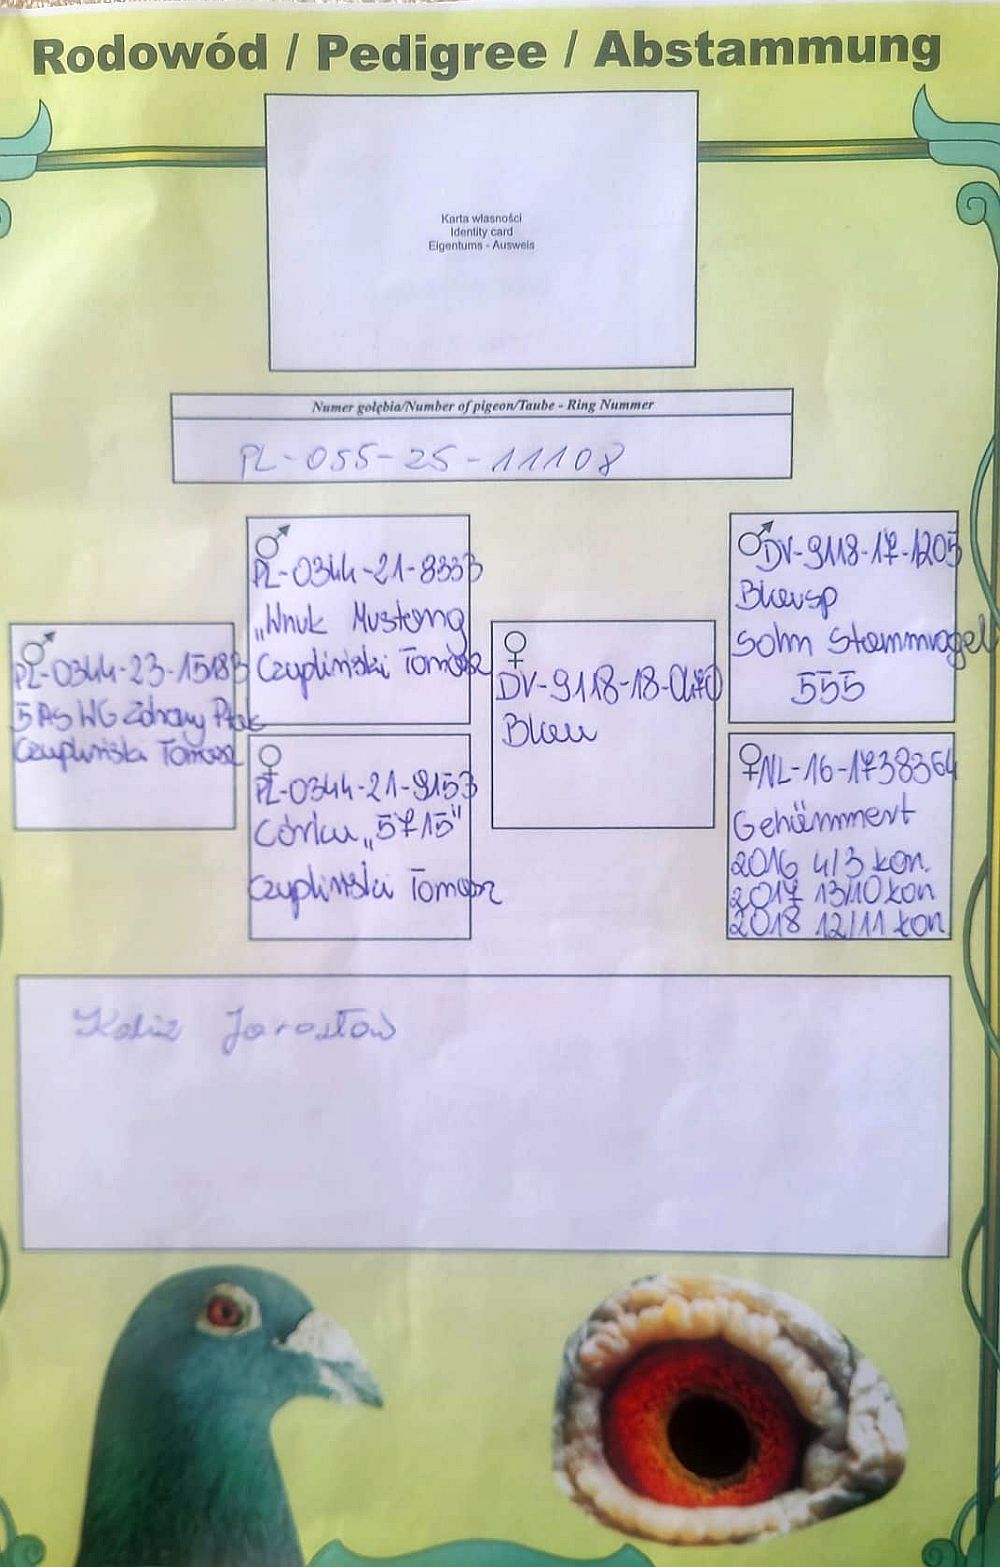 Rodowód / Pedigree / Abstammung
Karta własności
Identity card
Eigentums - Ausweis
Numer gołębia/Number of pigeon/Taube - Ring Nummer
PL-055-25-11108
♂
PL-0344-23-15183
5 AS WG Zdrowy Ptak
Czupliński Tomasz
♂
PL-0344-21-8333
„Wnuk Mustanga
Czupliński Tomasz
♀
PL-0344-21-9153
Córka „5715"
Czupliński Tomasz
♀
DV-9118-18-0470
Blau
♂DV-9118-17-1205
Blausp
Sohn Stammvogel
555
♀NL-16-1738364
Gehämmert
2016 4/3 kon.
2017 13/10 kon
2018 12/11 kon
Jarosław